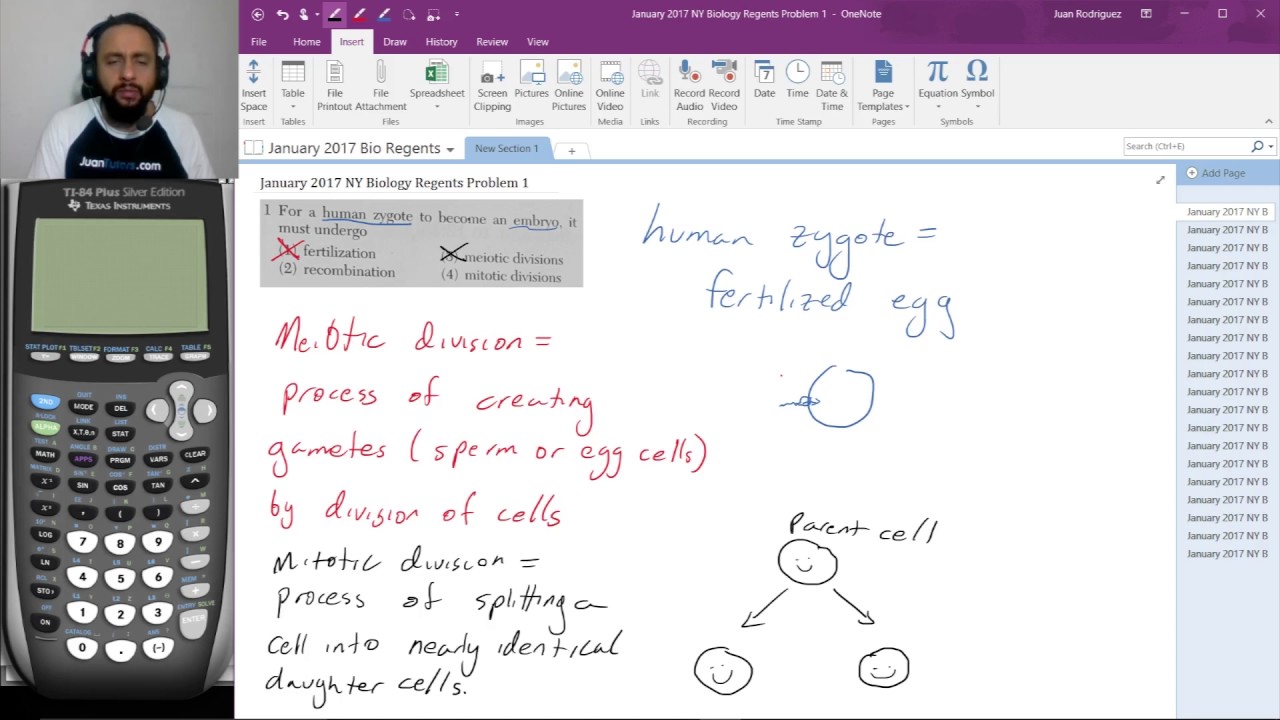 January 2017 NY Biology Regents Problem 1 - OneNote
Juan Rodriguez
File Home Insert Draw History Review View
Insert Space
Table
File Printout
File Attachment
Spreadsheet
Screen Clipping
Pictures
Online Pictures
Online Video
Link
Record Audio
Record Video
Date
Time
Date & Time
Page Templates
Equation
Symbol
Insert Tables Files Images Media Links Recording Time Stamp Pages Symbols
January 2017 Bio Regents
New Section 1
Search (Ctrl+E)
Add Page
January 2017 NY B
January 2017 NY B
January 2017 NY B
January 2017 NY B
January 2017 NY B
January 2017 NY B
January 2017 NY B
January 2017 NY B
January 2017 NY B
January 2017 NY B
January 2017 NY B
January 2017 NY B
January 2017 NY B
January 2017 NY B
January 2017 NY B
January 2017 NY B
January 2017 NY B
January 2017 NY B
January 2017 NY B
January 2017 NY B
January 2017 NY Biology Regents Problem 1
1 For a human zygote to become an embryo, it
must undergo
(1) fertilization
(3) meiotic divisions
(2) recombination
(4) mitotic divisions
human zygote =
fertilized egg
Meiotic division =
process of creating
gametes (sperm or egg cells)
by division of cells
Mitotic division =
process of splitting a
cell into nearly identical
daughter cells.
Parent cell
JuanTutors.com
TI-84 Plus Silver Edition
TEXAS INSTRUMENTS
STAT PLOT F1 TBLSET F2 FORMAT F3 CALC F4 TABLE F5
Y= WINDOW ZOOM TRACE GRAPH
QUIT INS
2ND MODE DEL
ALPHA X,T,θ,n STAT
MATH APPS PRGM VARS CLEAR
SIN COS TAN ^
x² , ( ) ÷
LOG 7 8 9 ×
LN 4 5 6 −
STO 1 2 3 +
ON 0 . (-) ENTER